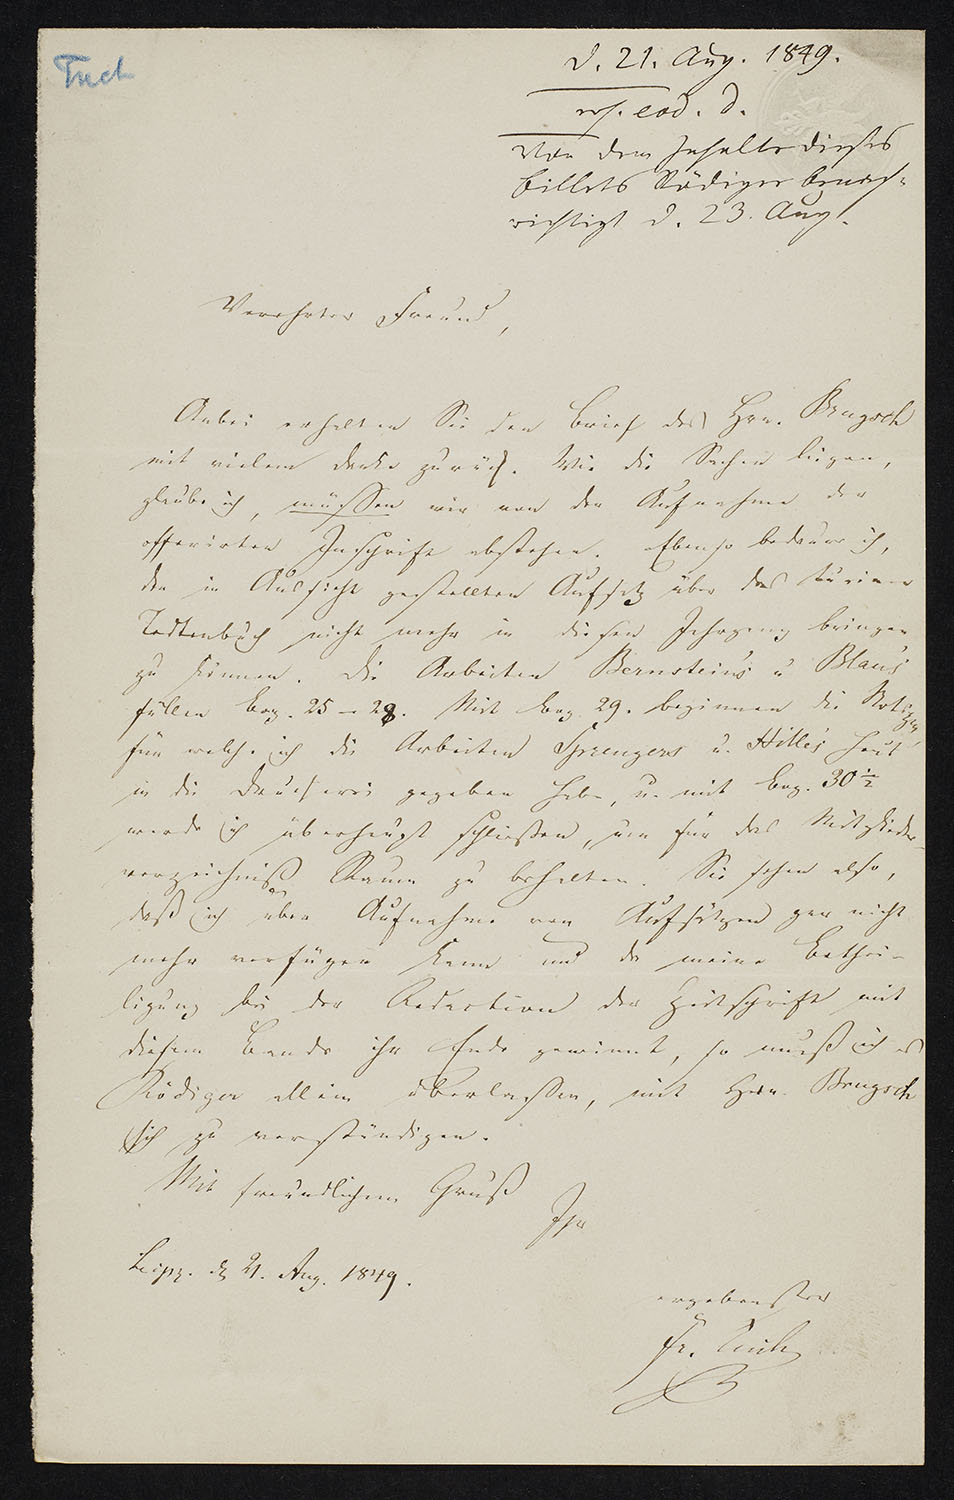 Tuch
d. 21. Aug. 1849.
rsp. eod. d.
Von dem Inhalte dieses
Billets Rödiger benach-
richtigt d. 23. Aug.
Verehrter Freund,
Anbei erhalten Sie den Brief des Hrn. Brugsch
mit vielem Danke zurück. Wie die Sachen liegen,
glaube ich, müssen wir von der Aufnahme der
offerirten Inschrift abstehen. Ebenso bedaure ich,
den in Aussicht gestellten Aufsatz über das Turiner
Todtenbuch nicht mehr in diesen Jahrgang bringen
zu können. Die Arbeiten Bernstein's u Blau's
füllen Bog. 25 – 28. Mit Bog. 29. beginnen die Notizen,
für welche ich die Arbeiten Sprengers u. Hille's heut
in die Druckerei gegeben habe, u. mit Bog. 30 1/2
werde ich überhaupt schließen, um für das Mitglieder-
verzeichniß Raum zu behalten. Sie sehen also,
daß ich über Aufnahme von Aufsätzen gar nicht
mehr verfügen kann und da meine Bethei-
ligung bei der Redaction der Zeitschrift mit
diesem Bande ihr Ende gewinnt, so muß ich es
Rödiger allein überlassen, mit Hrn. Brugsch
sich zu verständigen.
Mit freundlichem Gruß
Ihr
Leipz. d. 21. Aug. 1849.
ergebenster
Fr. Tuch